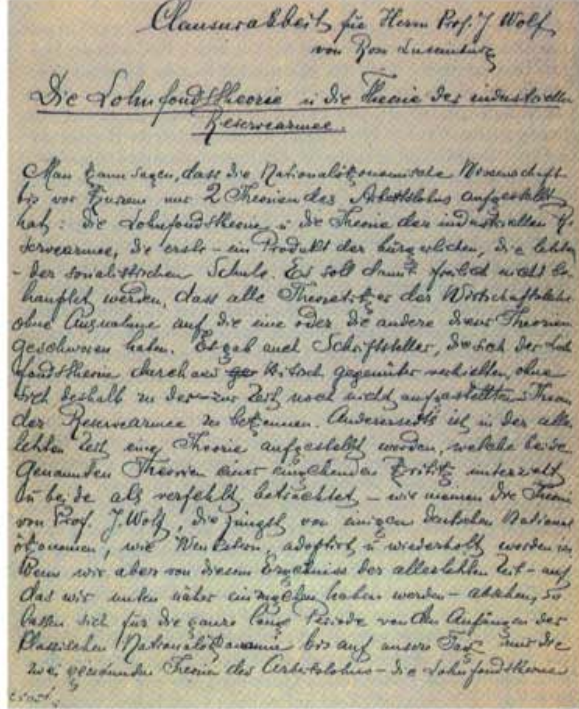 Clausurarbeit für Herrn Prof. J. Wolf
von Rosa Luxemburg
Die Lohnfondstheorie u. die Theorie der industriellen
Reservearmee.
Man kann sagen, dass die Nationalökonomische Wissenschaft
bis vor Kurzem nur 2 Theorien des Arbeitslohns aufgestellt
hat: die Lohnfondstheorie u. die Theorie der industriellen Re-
servearmee, die erste – ein Produkt der bürgerlichen, die letzte
– der sozialistischen Schule. Es soll damit freilich nicht be-
hauptet werden, dass alle Theoretiker der Wirtschaftslehre
ohne Ausnahme auf die eine oder die andere dieser Theorien
geschworen haben. Es gab auch Schriftsteller, die sich der Lohn-
fondstheorie durchaus kritisch gegenüber verhielten, ohne
sich deshalb zu der zur Zeit noch nicht aufgestellten Theorie
der Reservearmee zu bekennen. Andererseits ist in der aller-
letzten Zeit eine Theorie aufgestellt worden, welche beide
genannten Theorien einer eingehenden Kritik unterzieht
u. beide als verfehlt betrachtet – wir meinen die Theorie
von Prof. J. Wolf, die jüngst von einigen deutschen National-
ökonomen, wie Wenckstern, adoptirt u. wiederholt worden ist.
Wenn wir aber von diesem Ergebniss der allerletzten Zeit – auf
das wir unten näher einzugehen haben werden – absehen, so
lassen sich für die ganze lange Periode von den Anfängen der
klassischen Nationalökonomie bis auf unsere Tage nur die
zwei genannten Theorien des Arbeitslohns – die Lohnfondstheorie